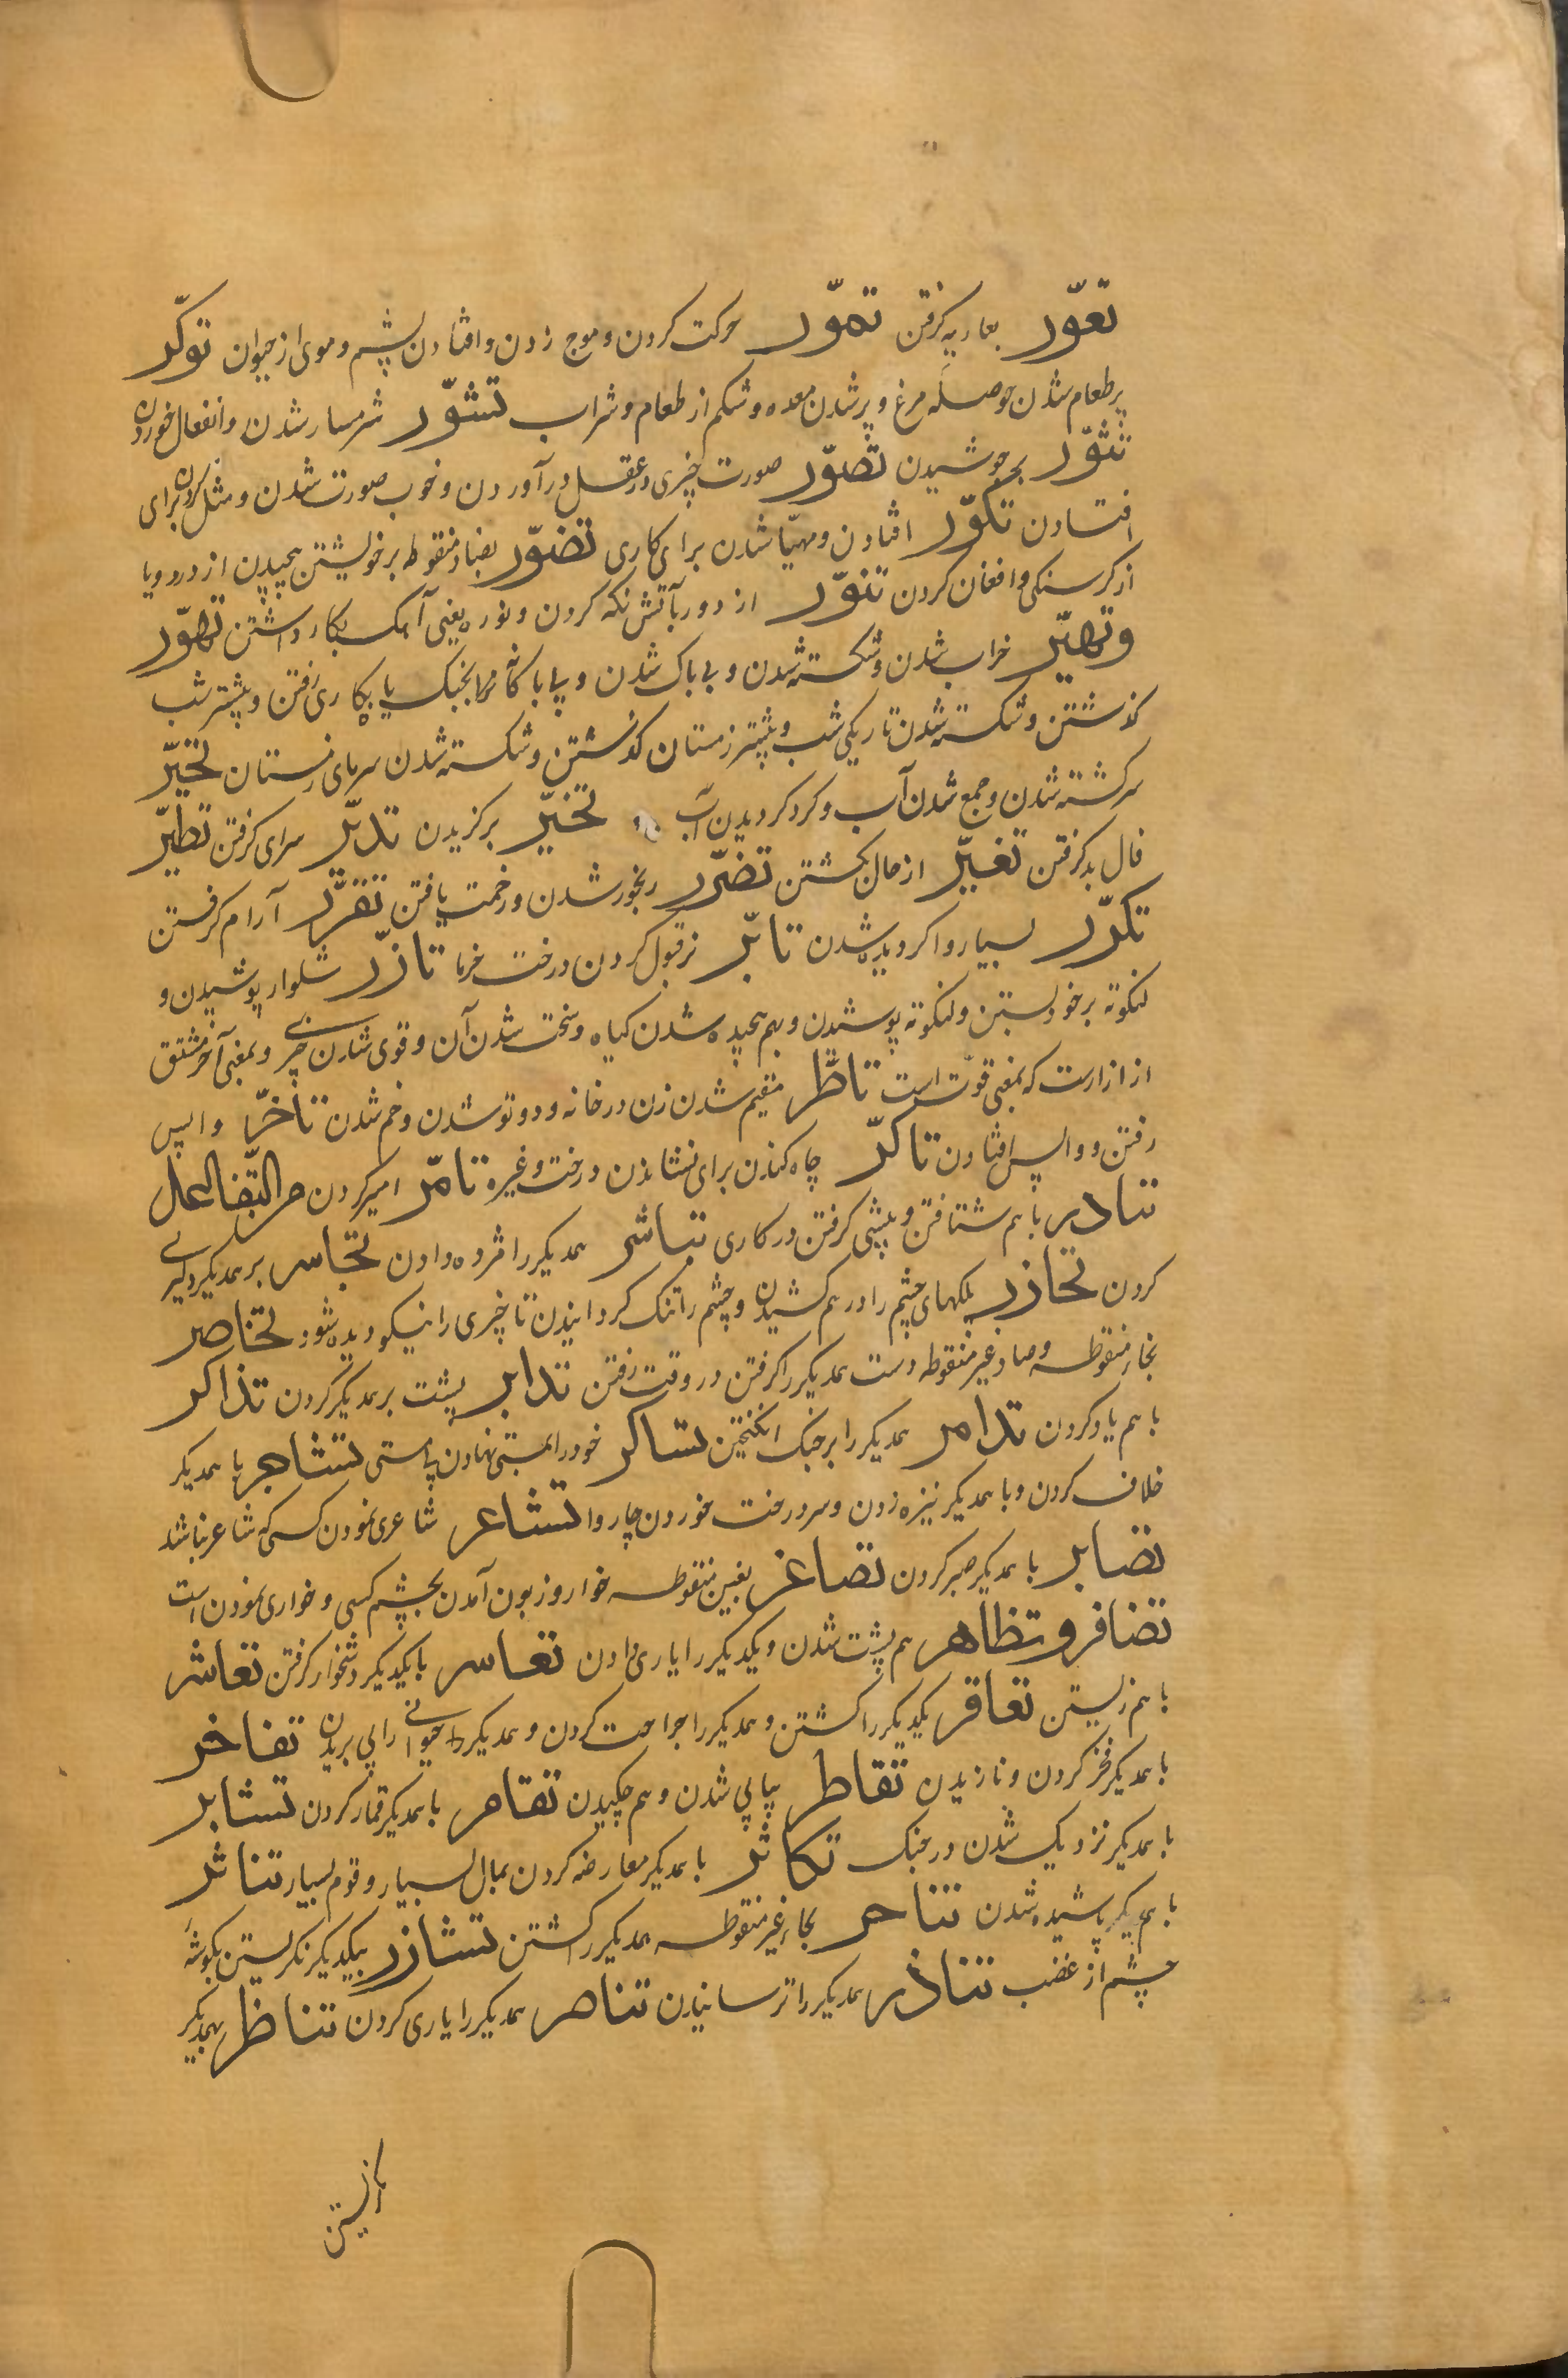 تعوّر بعاریه گرفتن تموّر حرکت کردن و موج زدن و افتادن پشم و موی از حیوان توکّر
پر طعام شدن حوصله مرغ و پر شدن معده و شکم از طعام و شراب تشوّر شرمسار شدن و انفعال خوردن
تثوّر بجوشیدن تصوّر صورت چیزی در عقل در آوردن و خوب صورت شدن و مثل کردن برای
افتادن تکوّر افتادن و مهیّا شدن برای کاری تضوّر بضاد منقوطه بر خویشتن پیچیدن از درد و یا
از گرسنگی و افغان کردن تنوّر از دور بآتش نگه کردن و نوره یعنی آهک بکار داشتن تهوّر
وتهیّر خراب شدن و شکسته شدن و بی باک شدن و بی باکانه بجنگ یا بکاری رفتن و بیشتر شب
گذشتن و شکسته شدن تاریکی شب و بیشتر زمستان گذشتن و شکسته شدن سرمای زمستان تحیّر
سرگشته شدن و جمع شدن آب و گرد گردیدن آب تخیّر برگزیدن تدیّر سرای گرفتن تطیّر
فال بد گرفتن تغیّر از حال بگشتن تضرّر رنجور شدن و زحمت یافتن تقرّر آرام گرفتن
تکرّر بسیار وا گردیده شدن تابّر نر قبول کردن درخت خرما تازّر شلوار پوشیدن و
لنگوته بر خود بستن و لنگوته پوشیدن و بهم پیچیده شدن گیاه و سخت شدن آن و قوی شدن چیزی و بمعنی آخر مشتق
از ازارست که بمعنی قوّت است تاطّر مقیم شدن زن در خانه و دوتو شدن و خم شدن تاخّر واپس
رفتن و واپس افتادن تاکّر چاه کندن برای نشاندن درخت و غیره تامّر امیر کردن من التفاعل
تبادر با هم شتافتن و پیشی گرفتن در کاری تباشر همدیگر را مژده دادن تجاسر بر همدیگر دلیری
کردن تخازر پلکهای چشم را در هم کشیدن و چشم را تنک گردانیدن تا چیزی را نیکو دیده شود تخاصر
بخاء منقوطه و صاد غیر منقوطه دست همدیگر را گرفتن در وقت رفتن تدابر پشت بر همدیگر کردن تذاکر
با هم یاد کردن تذامر همدیگر را بر جنک انگیختن تساکر خود را بمستی نهادن بی مستی تشاجر با همدیگر
خلاف کردن و با همدیگر نیزه زدن و سر درخت خوردن چاروا تشاعر شاعری نمودن کسی که شاعر نباشد
تصابر با همدیگر صبر کردن تصاغر بغین منقوطه خوار و زبون آمدن بچشم کسی و خواری نمودن است
تضافر و تظاهر هم پشت شدن و یکدیگر را یاری دادن تعاسر با یکدیگر دشخوار گرفتن تعاشر
با هم زیستن تعاقر یکدیگر را کشتن و همدیگر را جراحت کردن و همدیگر را حیوانی را پی بریدن تفاخر
با همدیگر فخر کردن و نازیدن تقاطر پیاپی شدن و هم چکیدن تقامر با همدیگر قمار کردن تشابر
با همدیگر نزدیک شدن در جنک تکاثر با همدیگر معارضه کردن بمال بسیار و قوم بسیار تناثر
با همدیگر پاشیده شدن تناحر بحاء غیر منقوطه همدیگر را کشتن تشازر بیکدیگر نگریستن بگوشهٔ
چشم از غضب تناذر همدیگر را ترسانیدن تناصر همدیگر را یاری کردن تناظر بهمدیگر